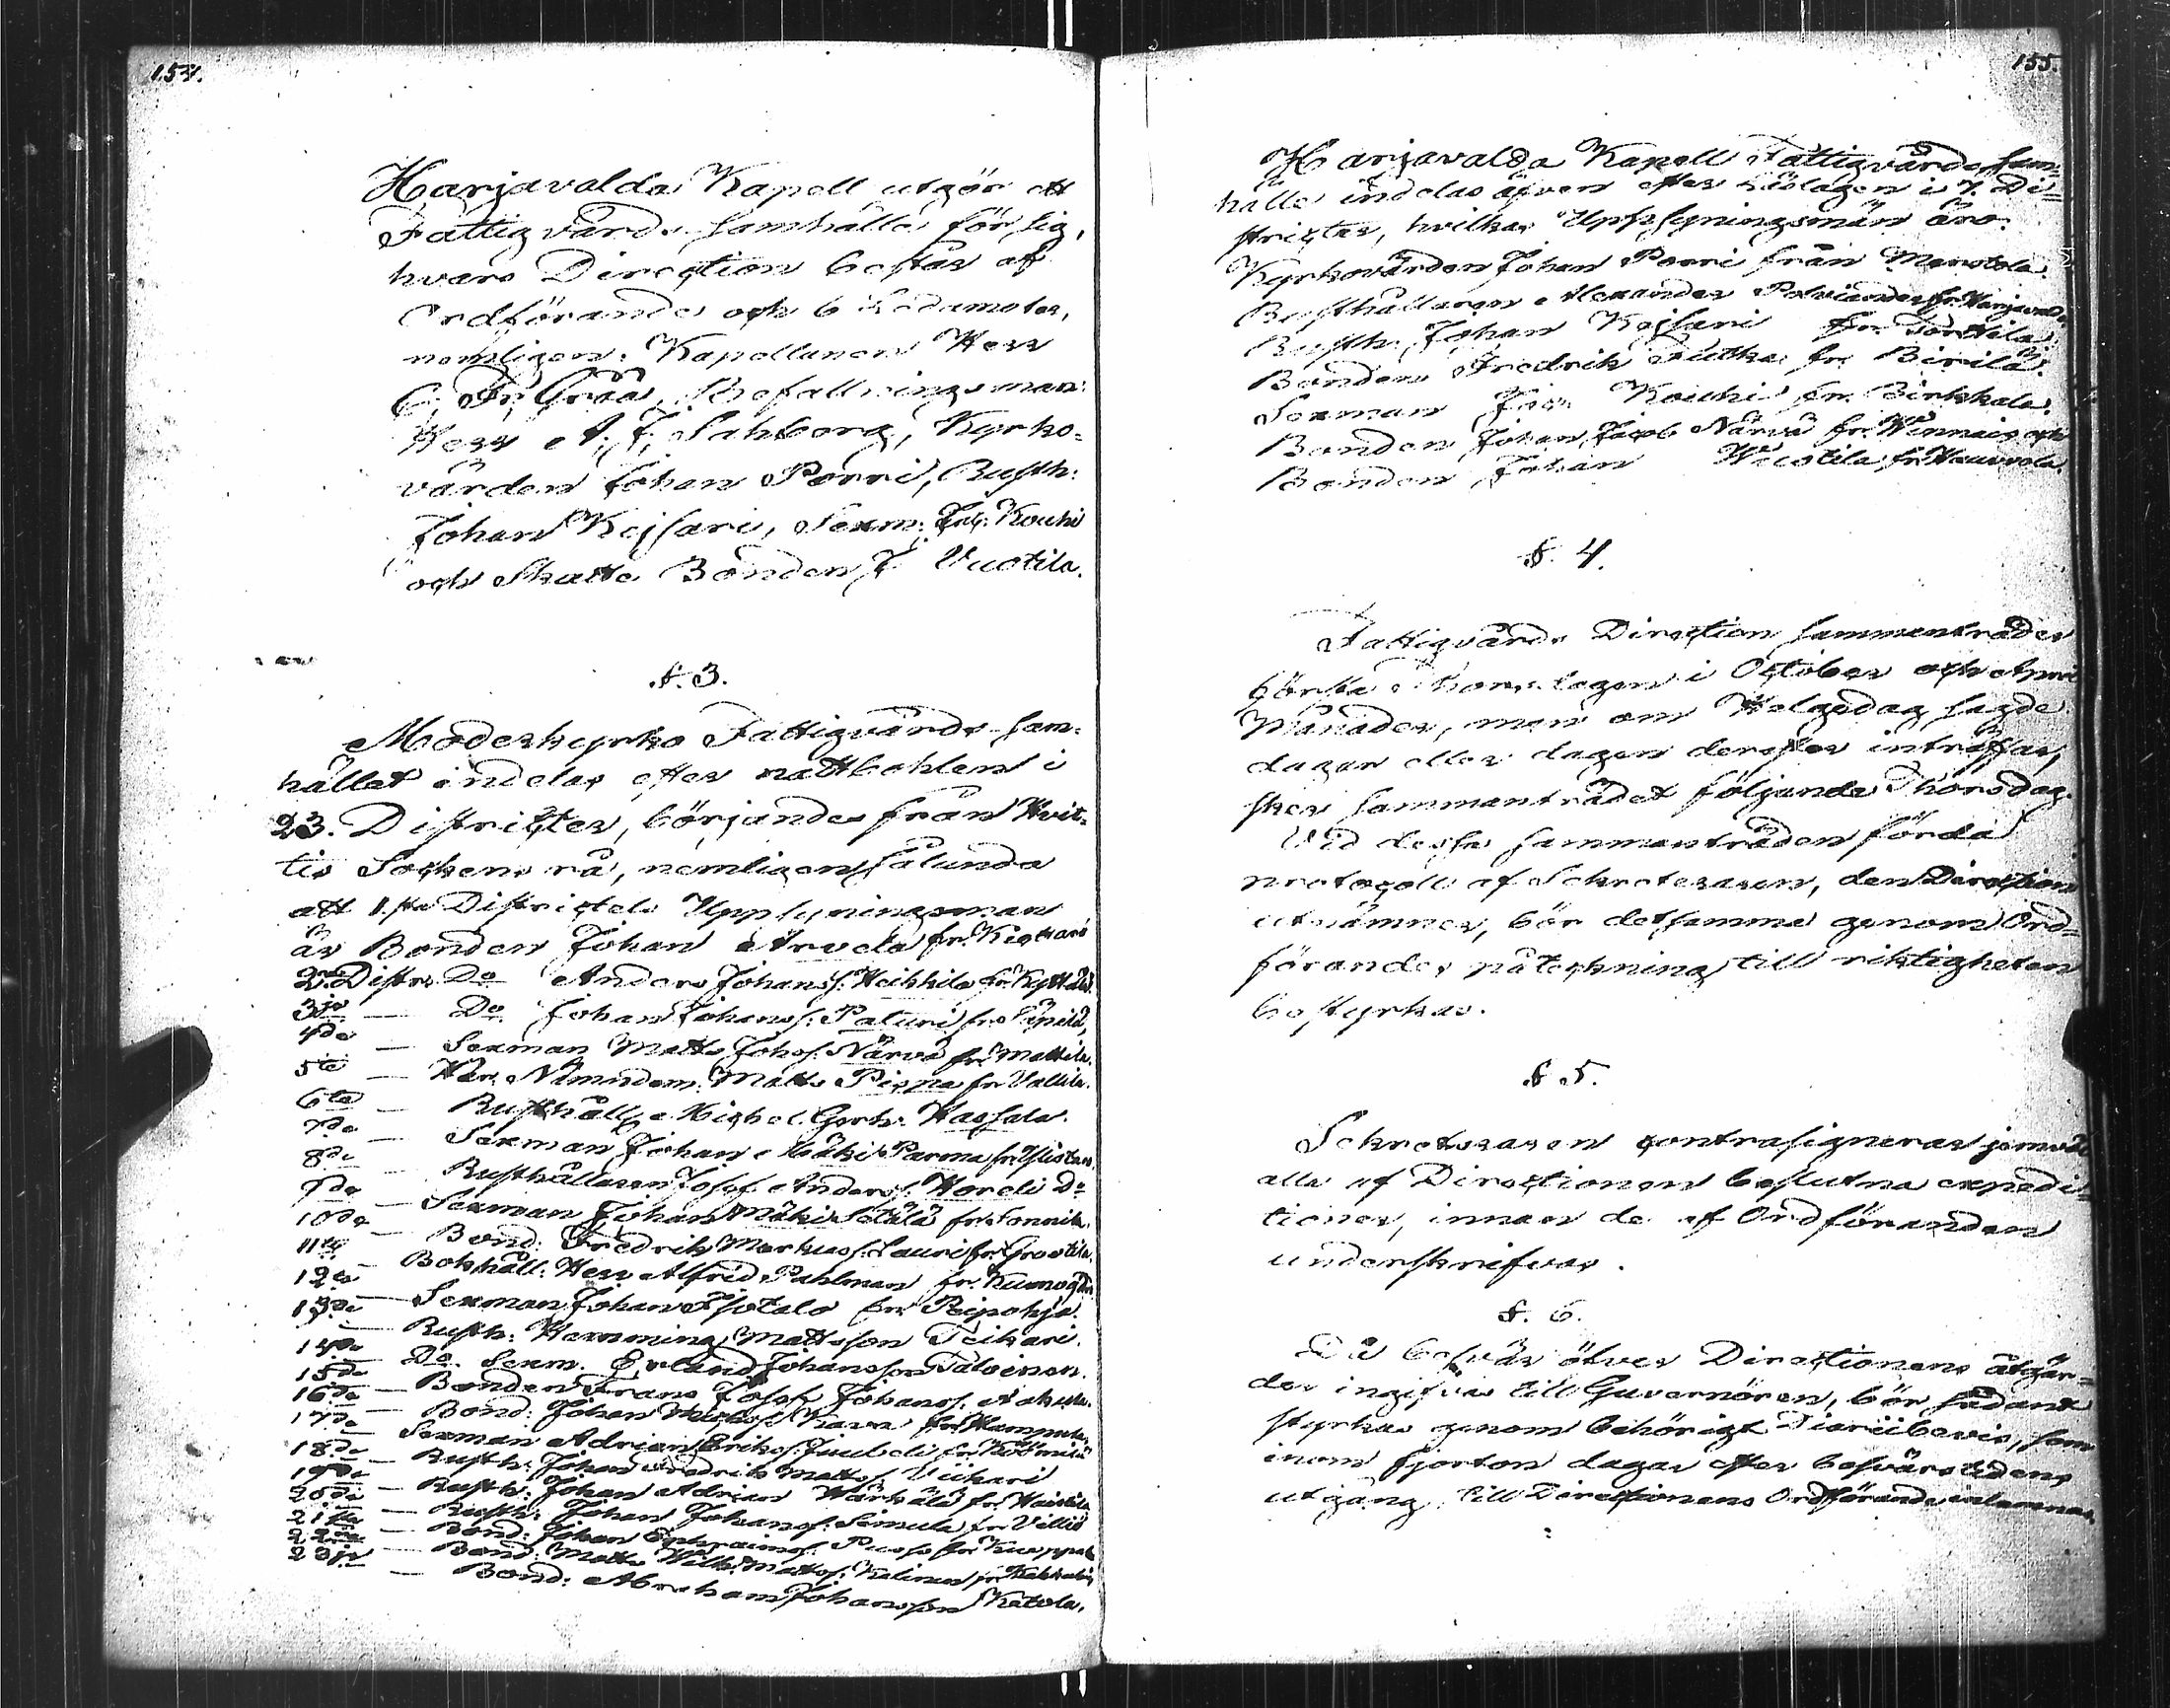 154.
Harjavalda Kapell utgör ett
Fattigvårds samhälle för sig,
hvars Direction består af
Ordförande och 6 Ledamoter,
nemligen: Kapellanen Herr
C. Fr. Gråå, Befallningsman:
Herr A. F. Sahlberg, Kyrko-
värden Johan Porri, Rusth:
Johan Kejsari, Sexm: Jac: Kouhi
och Skatte Bonden J Vuotila.
§. 3.
Moderkyrko Fattigvårds-sam-
hället indelas efter rättbohlen i
23. Districter, börjandes från Hvit-
tis Sockens rå, nemligen sålunda
att 1.sta Districtets Upplyningsman
är Bonden Johan Arvela fr.
2dra Distr. Do Anders Johanss. Heikkilä fr.
3je — Do Johan Johanss: Paturi fr.
4de — Sexman Matts Johss. Närvä fr. Mattila.
5te — Här. Nämndem: Matts Piepa fr Vallila.
6te — Rusthåll: Michel Hassala.
7de — Sexman Johan Mäki Parma fr.
8de — Rusthållaren Josef Anderss: Horeli Do
9de — Sexman Johan Mäki Sotälä fr. Sonnila.
10de — Bond: Fredrik Markuss: Lauri fr.
11te — Bokhåll: Herr Alfred Pahlman fr.
12te — Sexman Johan Isotalo fr. Peipohja.
13de — Rusth: Hemming Mattsson Teikari.
14de — Do Sexm. Erland Johansson
15de — Bonden Frans Josef Johanss.
16de — Bond: Johan
17de — Sexman Adrian Erikss. Juubeli fr.
18de — Rusth: Johan Fredrik Matts. Viikari
19de — Rusth: Johan Adrian Wärhälä fr.
20de — Rusth: Johan Johanss: Simula fr Villiö
21sta — Bond: Johan Ephraimss. fr
22dra — Bond: Matts Wilh: Matts.
23je — Bond: Abraham Johansson Ketola.
155.
Harjavalda Kapell Fattigvårds sam-
hälle indelas äfven efter i 7. Di-
stricter, hvilkas Upplyningsmän äro.
Kyrkovärden Johan Porri från Merstola.
Rusthållaren Alexander fr. Harjavalda
Rusth: Johan Kejsari fr. Torttila.
Bonden Fredrik fr. Pirilä.
Sexman Jac: Kouhi fr. Pirkkala.
Bonden Johan Jacob Närvä fr. Hinnais och
Bonden Johan Wuotila fr.
§. 4.
Fattigvårds Direction sammanträder
första Thorsdagen i October och April
Månader, men om Helgedag sagde
dagar eller dagen derefter inträffar,
sker sammanträdet följande Thorsdag.
Vid dessa sammanträden förda
protocoll af Sekreteraren, den Direction
utnämner, bör detsamma genom Ord-
förandes påteckning till riktigheten
bestyrkas.
§ 5.
Sekreteraren contrasignerar jemväl
alla af Directionen beslutna expedi-
tioner, innan de af Ordföranden
underskrifvas.
§. 6.
Då besvär öfver Directionens åtgär-
der ingifvas till Guvernören, bör sådant
styrkas genom behörigt Diariibevis, som
inom fjorton dagar efter besvärstidens
utgång, till Directionens Ordförande inlemnas.